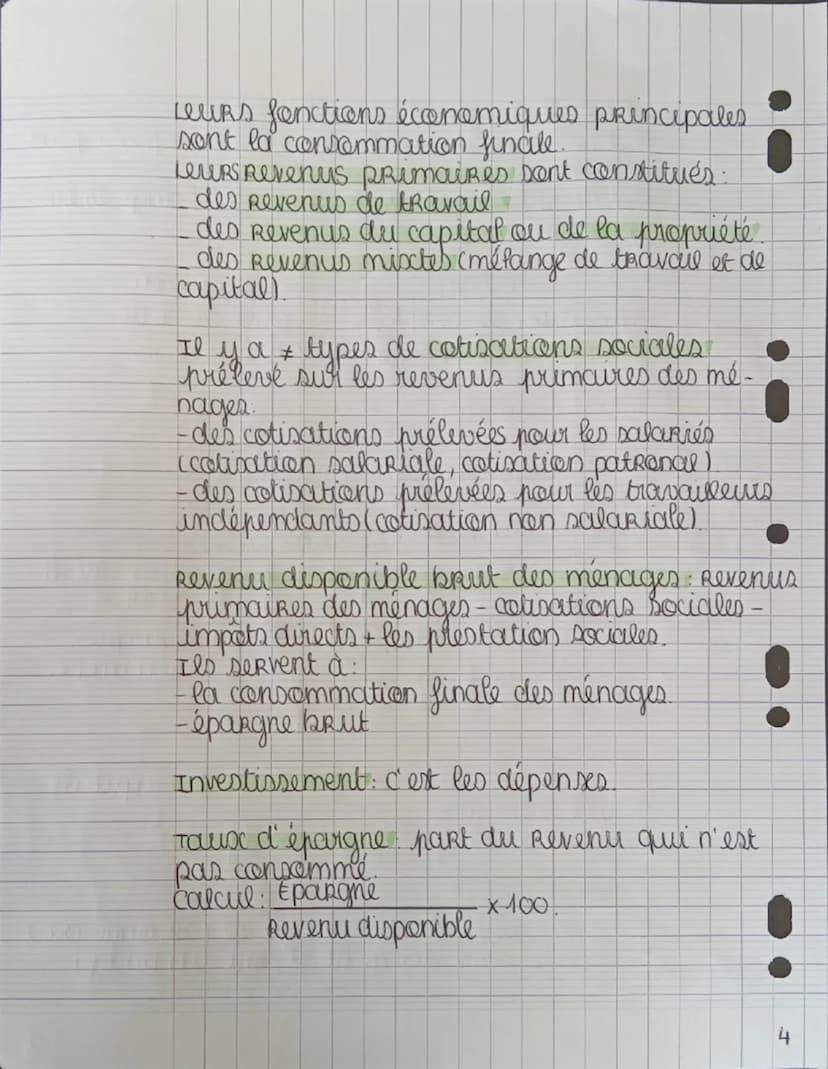 Leurs fonctions économiques principales
sont la consommation finale.
Leurs revenus primaires sont constitués :
- des revenus de travail
- des revenus du capital ou de la propriété.
- des revenus mixtes (mélange de travail et de
capital).
Il y a ≠ types de cotisations sociales
prélevé sur les revenus primaires des mé-
nages.
- des cotisations prélevées pour les salariés
(cotisation salariale, cotisation patronal)
- des cotisations prélevées pour les travailleurs
indépendants (cotisation non salariale)
Revenu disponible brut des ménages : Revenus
primaires des ménages - cotisations sociales -
impôts directs + les prestation sociales.
Ils servent à :
- la consommation finale des ménages.
- épargne brut
Investissement : c'est les dépenses.
Taux d'épargne : part du revenu qui n'est
pas consommé.
Calcul : Épargne
Revenu disponible × 100.
4